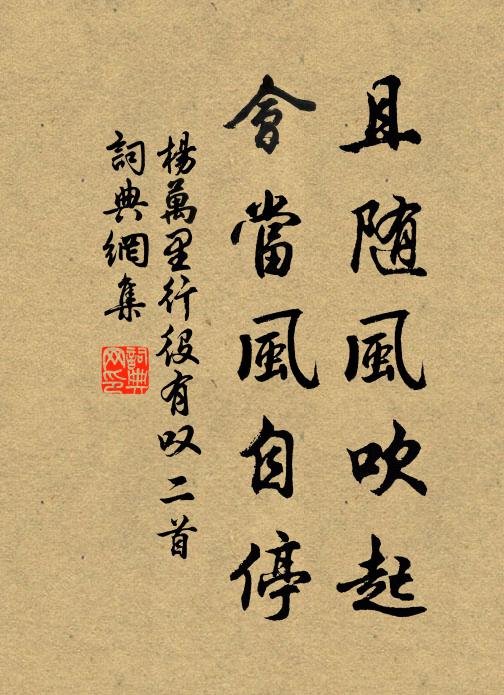 且随風吹起
會當風自停
楊萬里行役有叹二首
詞典網集
詞典网印